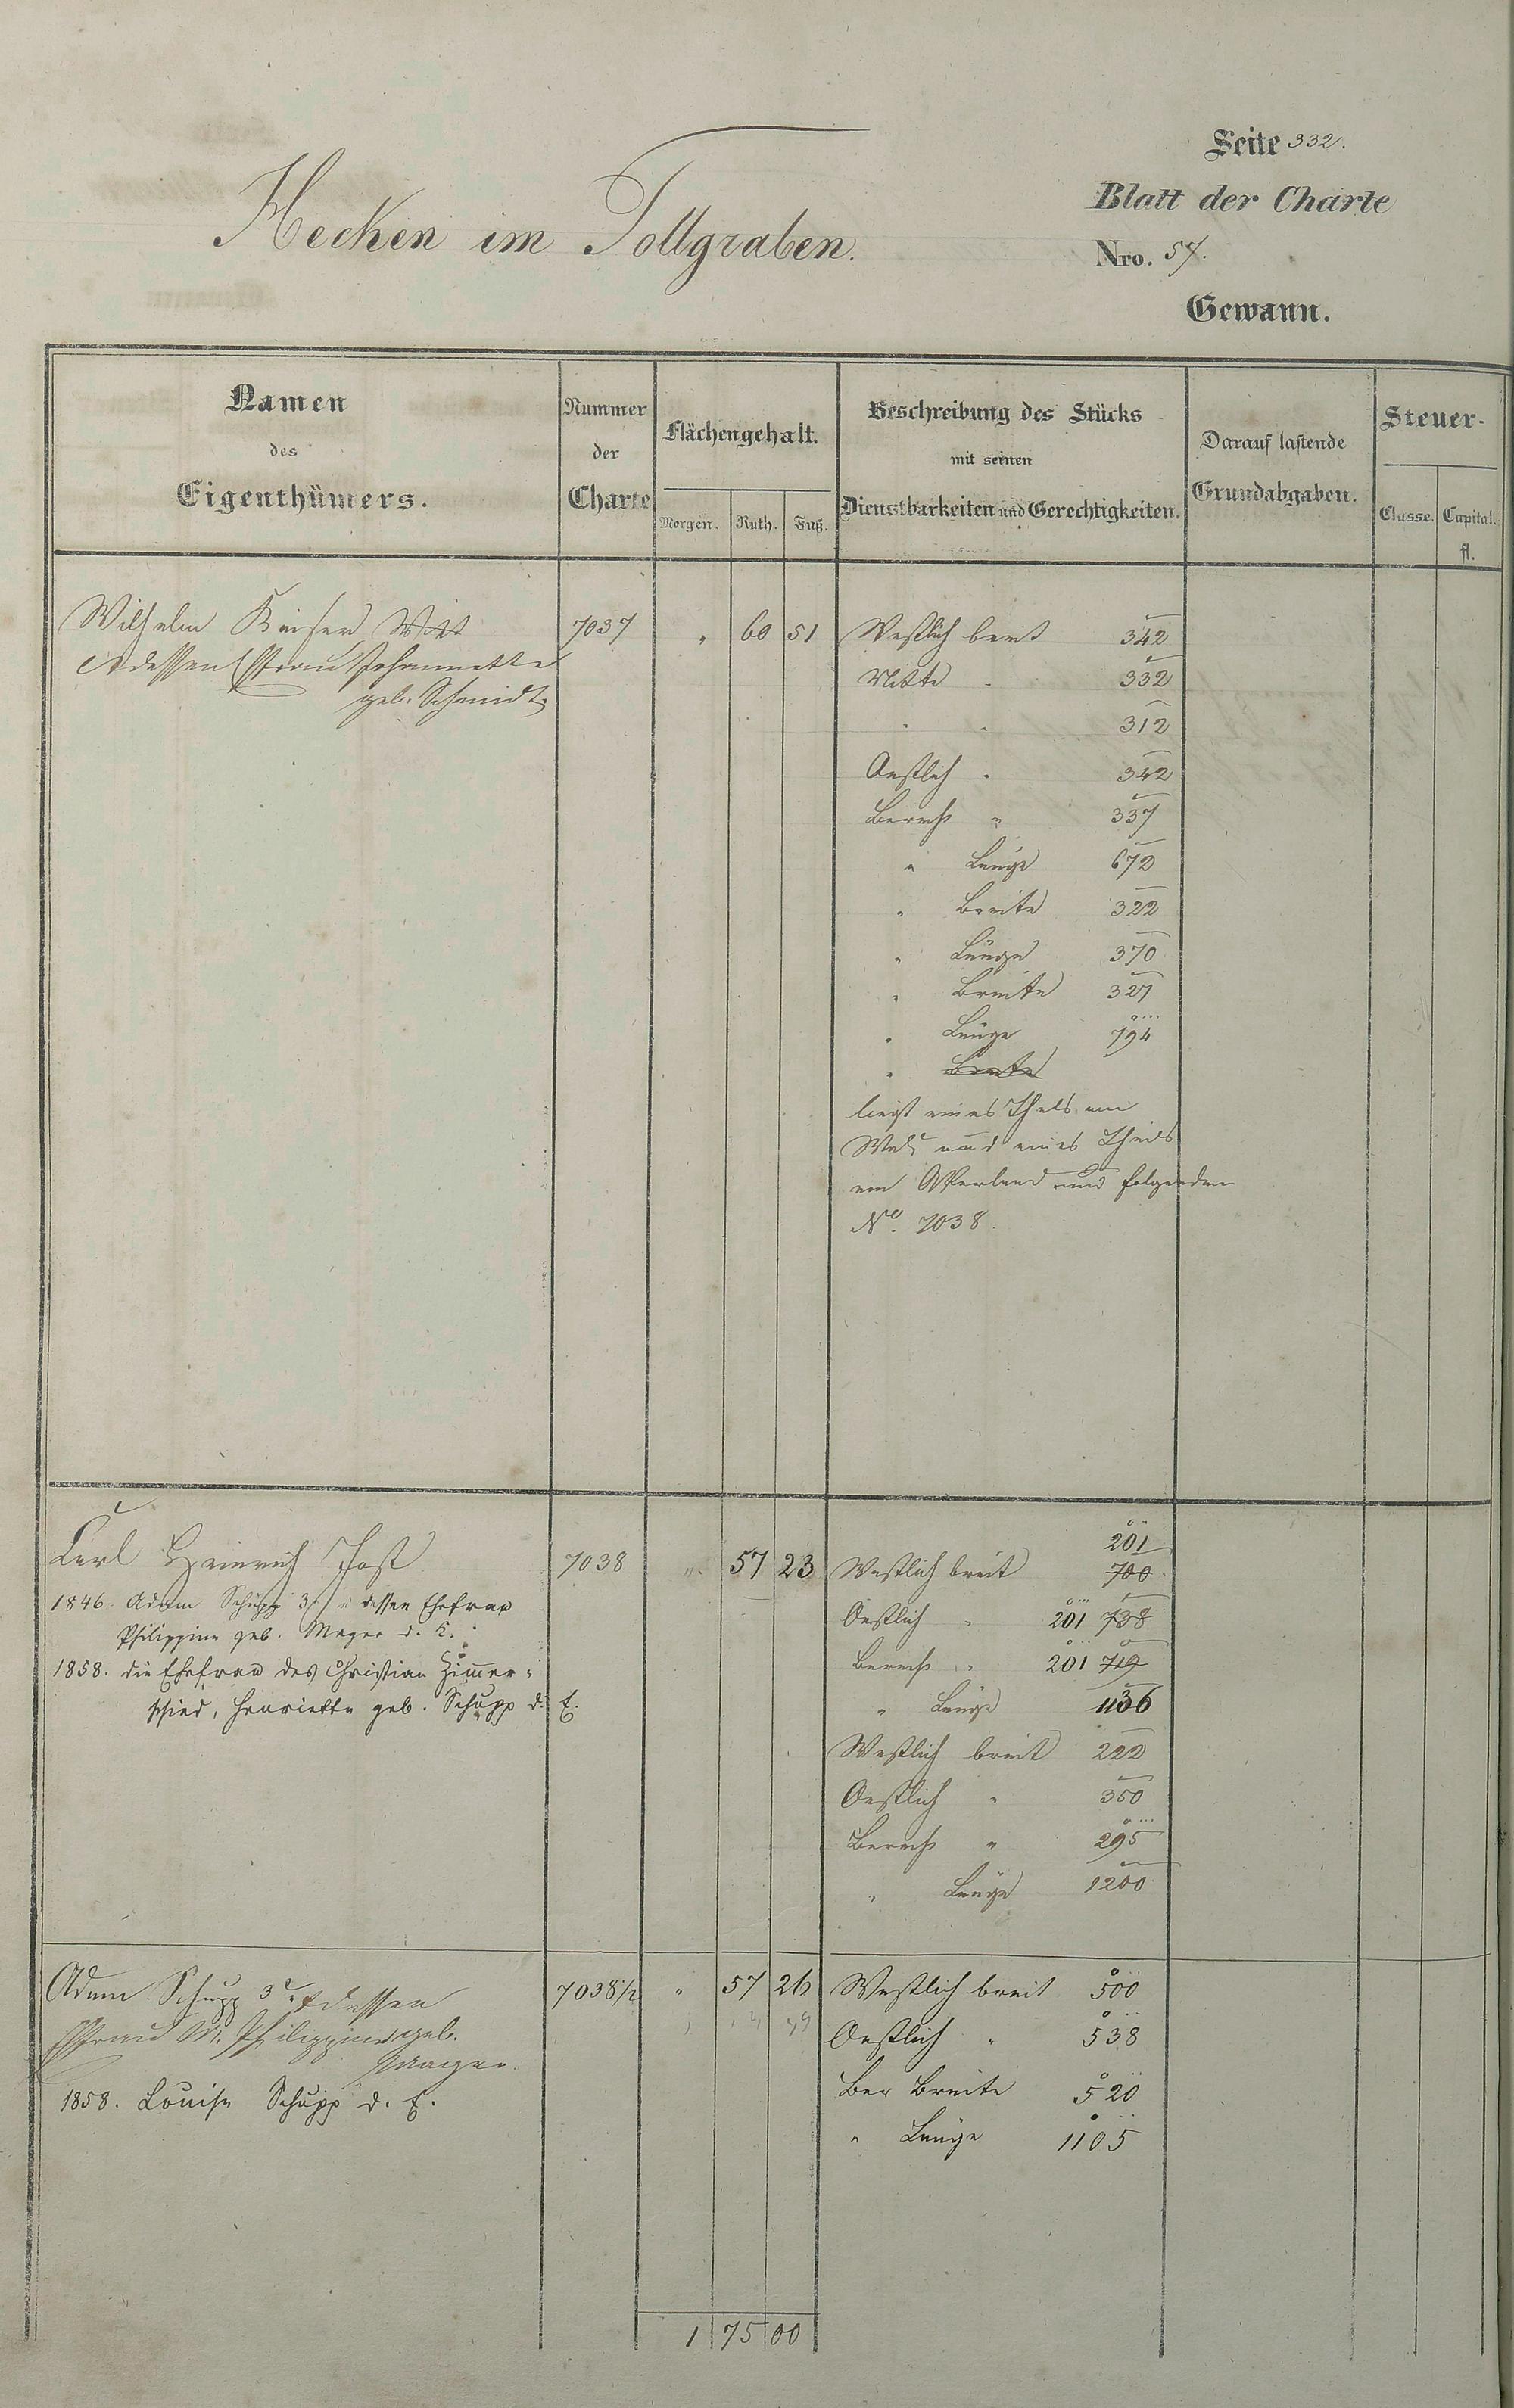 Seite 332.
Hecken im Tollgraben.
Blatt der Charte
Nro. 57.
Gewann.
Namen
des
Eigenthümers.
Nummer
der
Charte
Flächengehalt.
Morgen. Ruth. Fuß.
Beschreibung des Stücks
mit seinen
Dienstbarkeiten und Gerechtigkeiten.
Darauf lastende
Grundabgaben.
Steuer-
Classe. Capital.
fl.
Wilhelm Kaiser Witt 7037 " 60 51 Westlich breit 342
& dessen Ehfrau Johannette
geb. Schmidt
Mitte " 332
" " 312
Oestlich " 342
Berech " 337
" Länge 672
" Breite 322
" Länge 370
" Breite 327
" Länge 794
" Breite
liegt eines Theils am
Wald und eines Theils
am Ackerland und folgenden
No. 7038.
201
Carl Heinrich Jost 7038 " 57 23 Westlich breit 700
1846. Adam Schupp 3r u dessen Ehefrau
Philippine geb. Mayer d. K.
Oestlich " 201 738
1858. die Ehefrau des Christian Zimmer-
schied, Henriette geb. Schupp d. E.
Berech " 201 719
" Länge 1136
Westlich breit 222
Oestlich " 350
Berech " 295
" Länge 1200
Adam Schupp 3r & dessen 7038 1/2 " 57 26 Westlich breit 500
Ehfrau M. Philippine geb.
Mayer.
Oestlich " 538
1858. Louise Schupp d. E.
Ber Breite 520
" Länge 1105
1 75 00